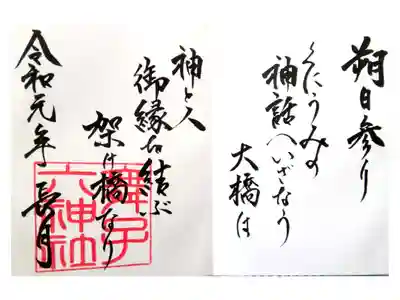 朔日参り
くにうみの
神話へいざなう
大橋は
神と人
御縁を結ぶ
架け橋なり
令和元年 長月
舞子
六神社